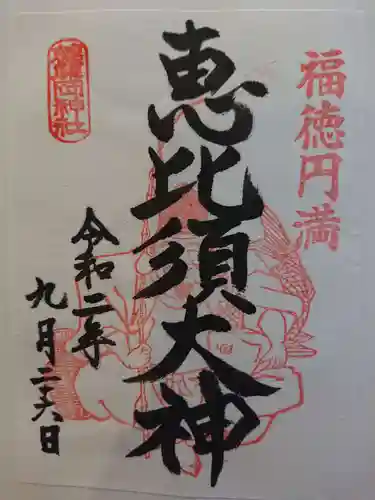 福徳円満
恵比須大神
令和二年
九月二十六日